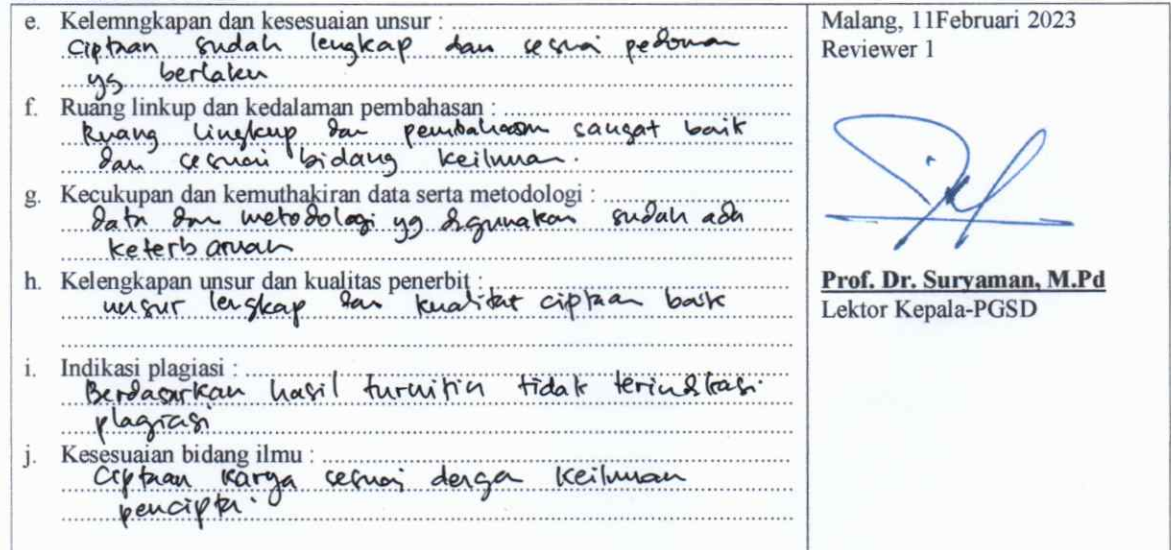 e. Kelemngkapan dan kesesuaian unsur :
Ciptaan sudah lengkap dan sesuai pedoman
yg berlaku
f. Ruang linkup dan kedalaman pembahasan :
Ruang lingkup dan pembahasan sangat baik
dan sesuai bidang keilmuan.
g. Kecukupan dan kemuthakiran data serta metodologi :
data dan metodologi yg digunakan sudah ada
keterbaruan
h. Kelengkapan unsur dan kualitas penerbit :
unsur lengkap dan kualitas ciptaan baik
i. Indikasi plagiasi :
Berdasarkan hasil turnitin tidak terindikasi
plagiasi
j. Kesesuaian bidang ilmu :
Ciptaan karya sesuai dengan keilmuan
pencipta.
Malang, 11Februari 2023
Reviewer 1
Prof. Dr. Suryaman, M.Pd
Lektor Kepala-PGSD